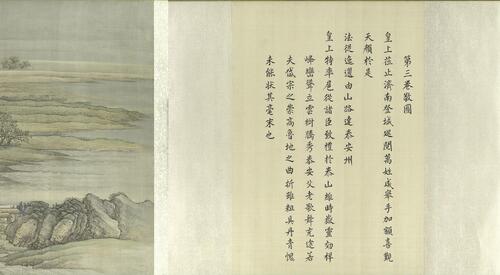 第三卷敬圖
皇上蒞止濟南登城巡閱萬姓咸舉手加額喜觀
天顏於是
法從逶迤由山路達泰安州
皇上特率扈從諸臣致禮於泰山維時嶽靈効祥
峰巒聳立雲樹騰秀泰安父老歌舞充途若
夫岱宗之崇高魯地之曲折雖粗具丹青愧
未能狀其毫末也